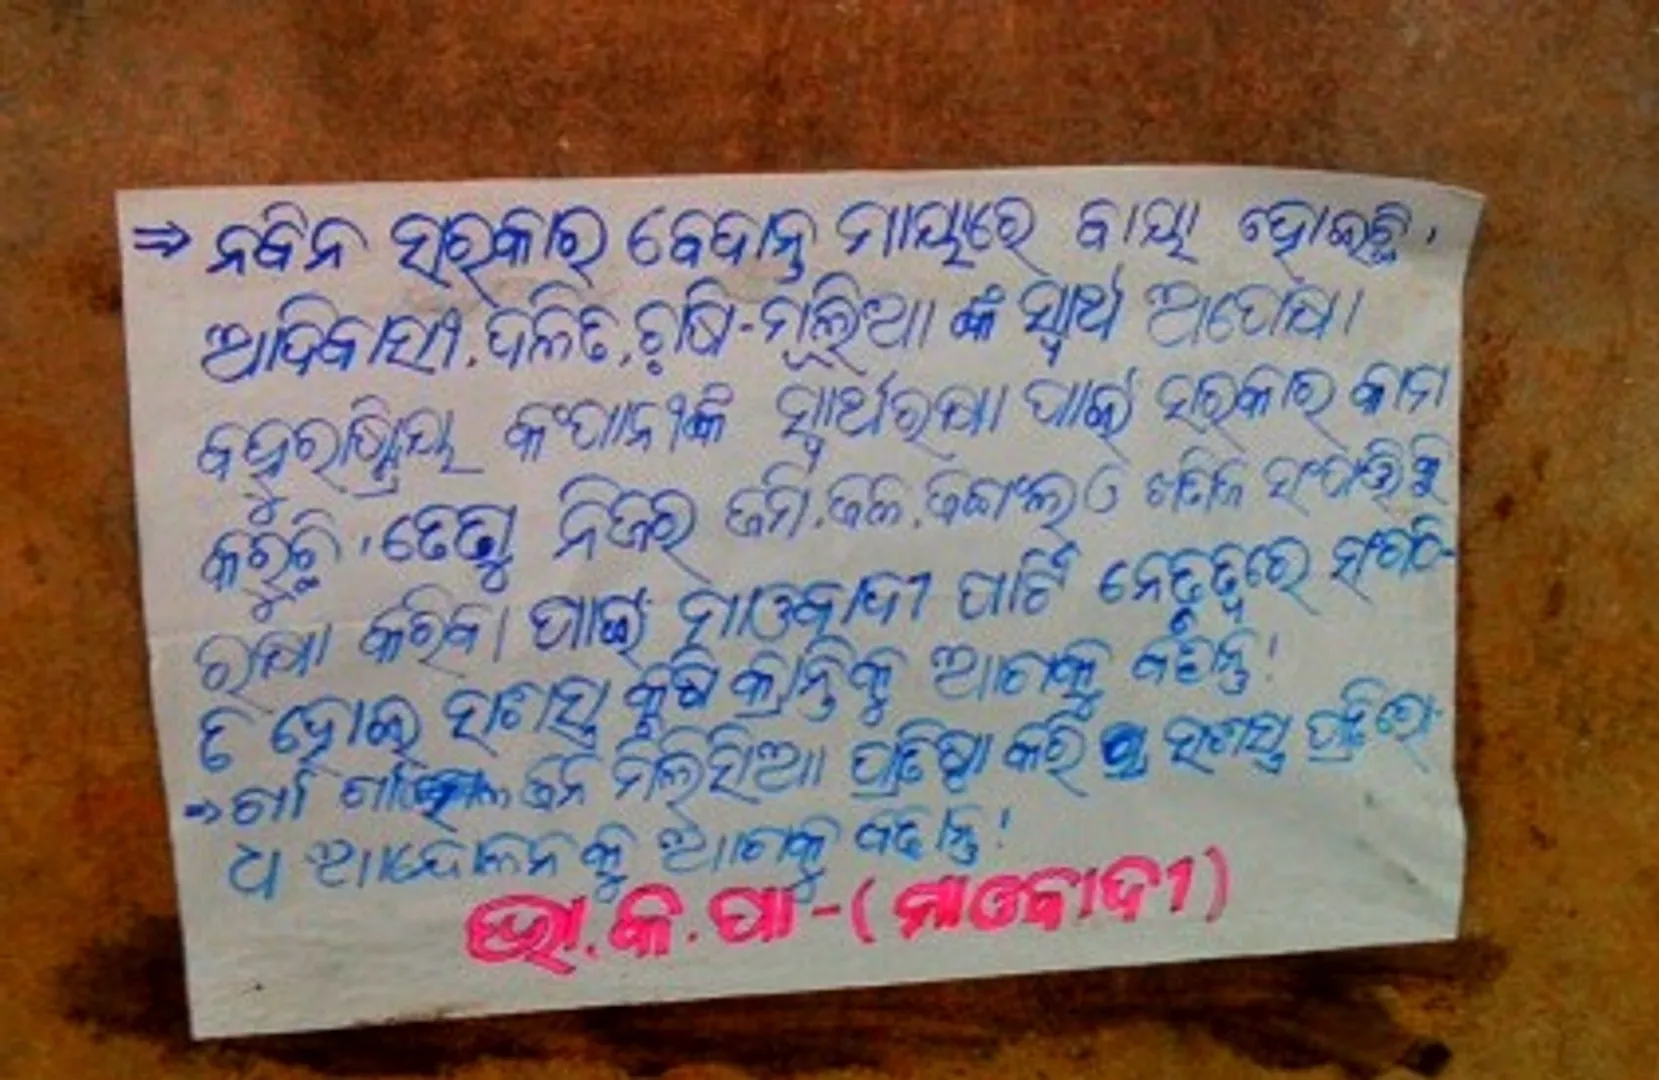 ⇒ ନବିନ ସରକାର ବେଦାନ୍ତ ମାୟାରେ ବାୟା ହୋଇଛି,
ଆଦିବାସୀ, ଦଳିତ, ଚାଷି-ମୂଲିଆ ଙ୍କ ସ୍ୱାର୍ଥ ଅପେକ୍ଷା
ବହୁରାଷ୍ଟ୍ରିୟ କଂପାନୀଙ୍କ ସ୍ୱାର୍ଥରକ୍ଷା ପାଇଁ ସରକାର କାମ
କରୁଚି, ତେଣୁ ନିଜର ଜମି, ଜଳ, ଜଙ୍ଗଲ ଓ ଖଣିଜ ସଂପତ୍ତିକୁ
ରକ୍ଷା କରିବା ପାଇଁ ମାଓବାଦୀ ପାର୍ଟି ନେତୃତ୍ୱରେ ସଂଗଠି-
ତ ହୋଇ ସଶସ୍ତ୍ର କୃଷି କ୍ରାନ୍ତିକୁ ଆଗକୁ ବଢାନ୍ତୁ!
⇒ ଗାଁ ଗାଁରେ ଜନ ମିଲିସିଆ ପ୍ରତିଷ୍ଠା କରି ସଶସ୍ତ୍ର ପ୍ରତିରୋ-
ଧ ଆନ୍ଦୋଳନ କୁ ଆଗକୁ ବଢାନ୍ତୁ!
ଭା.କ.ପା-(ମାଓବାଦୀ)